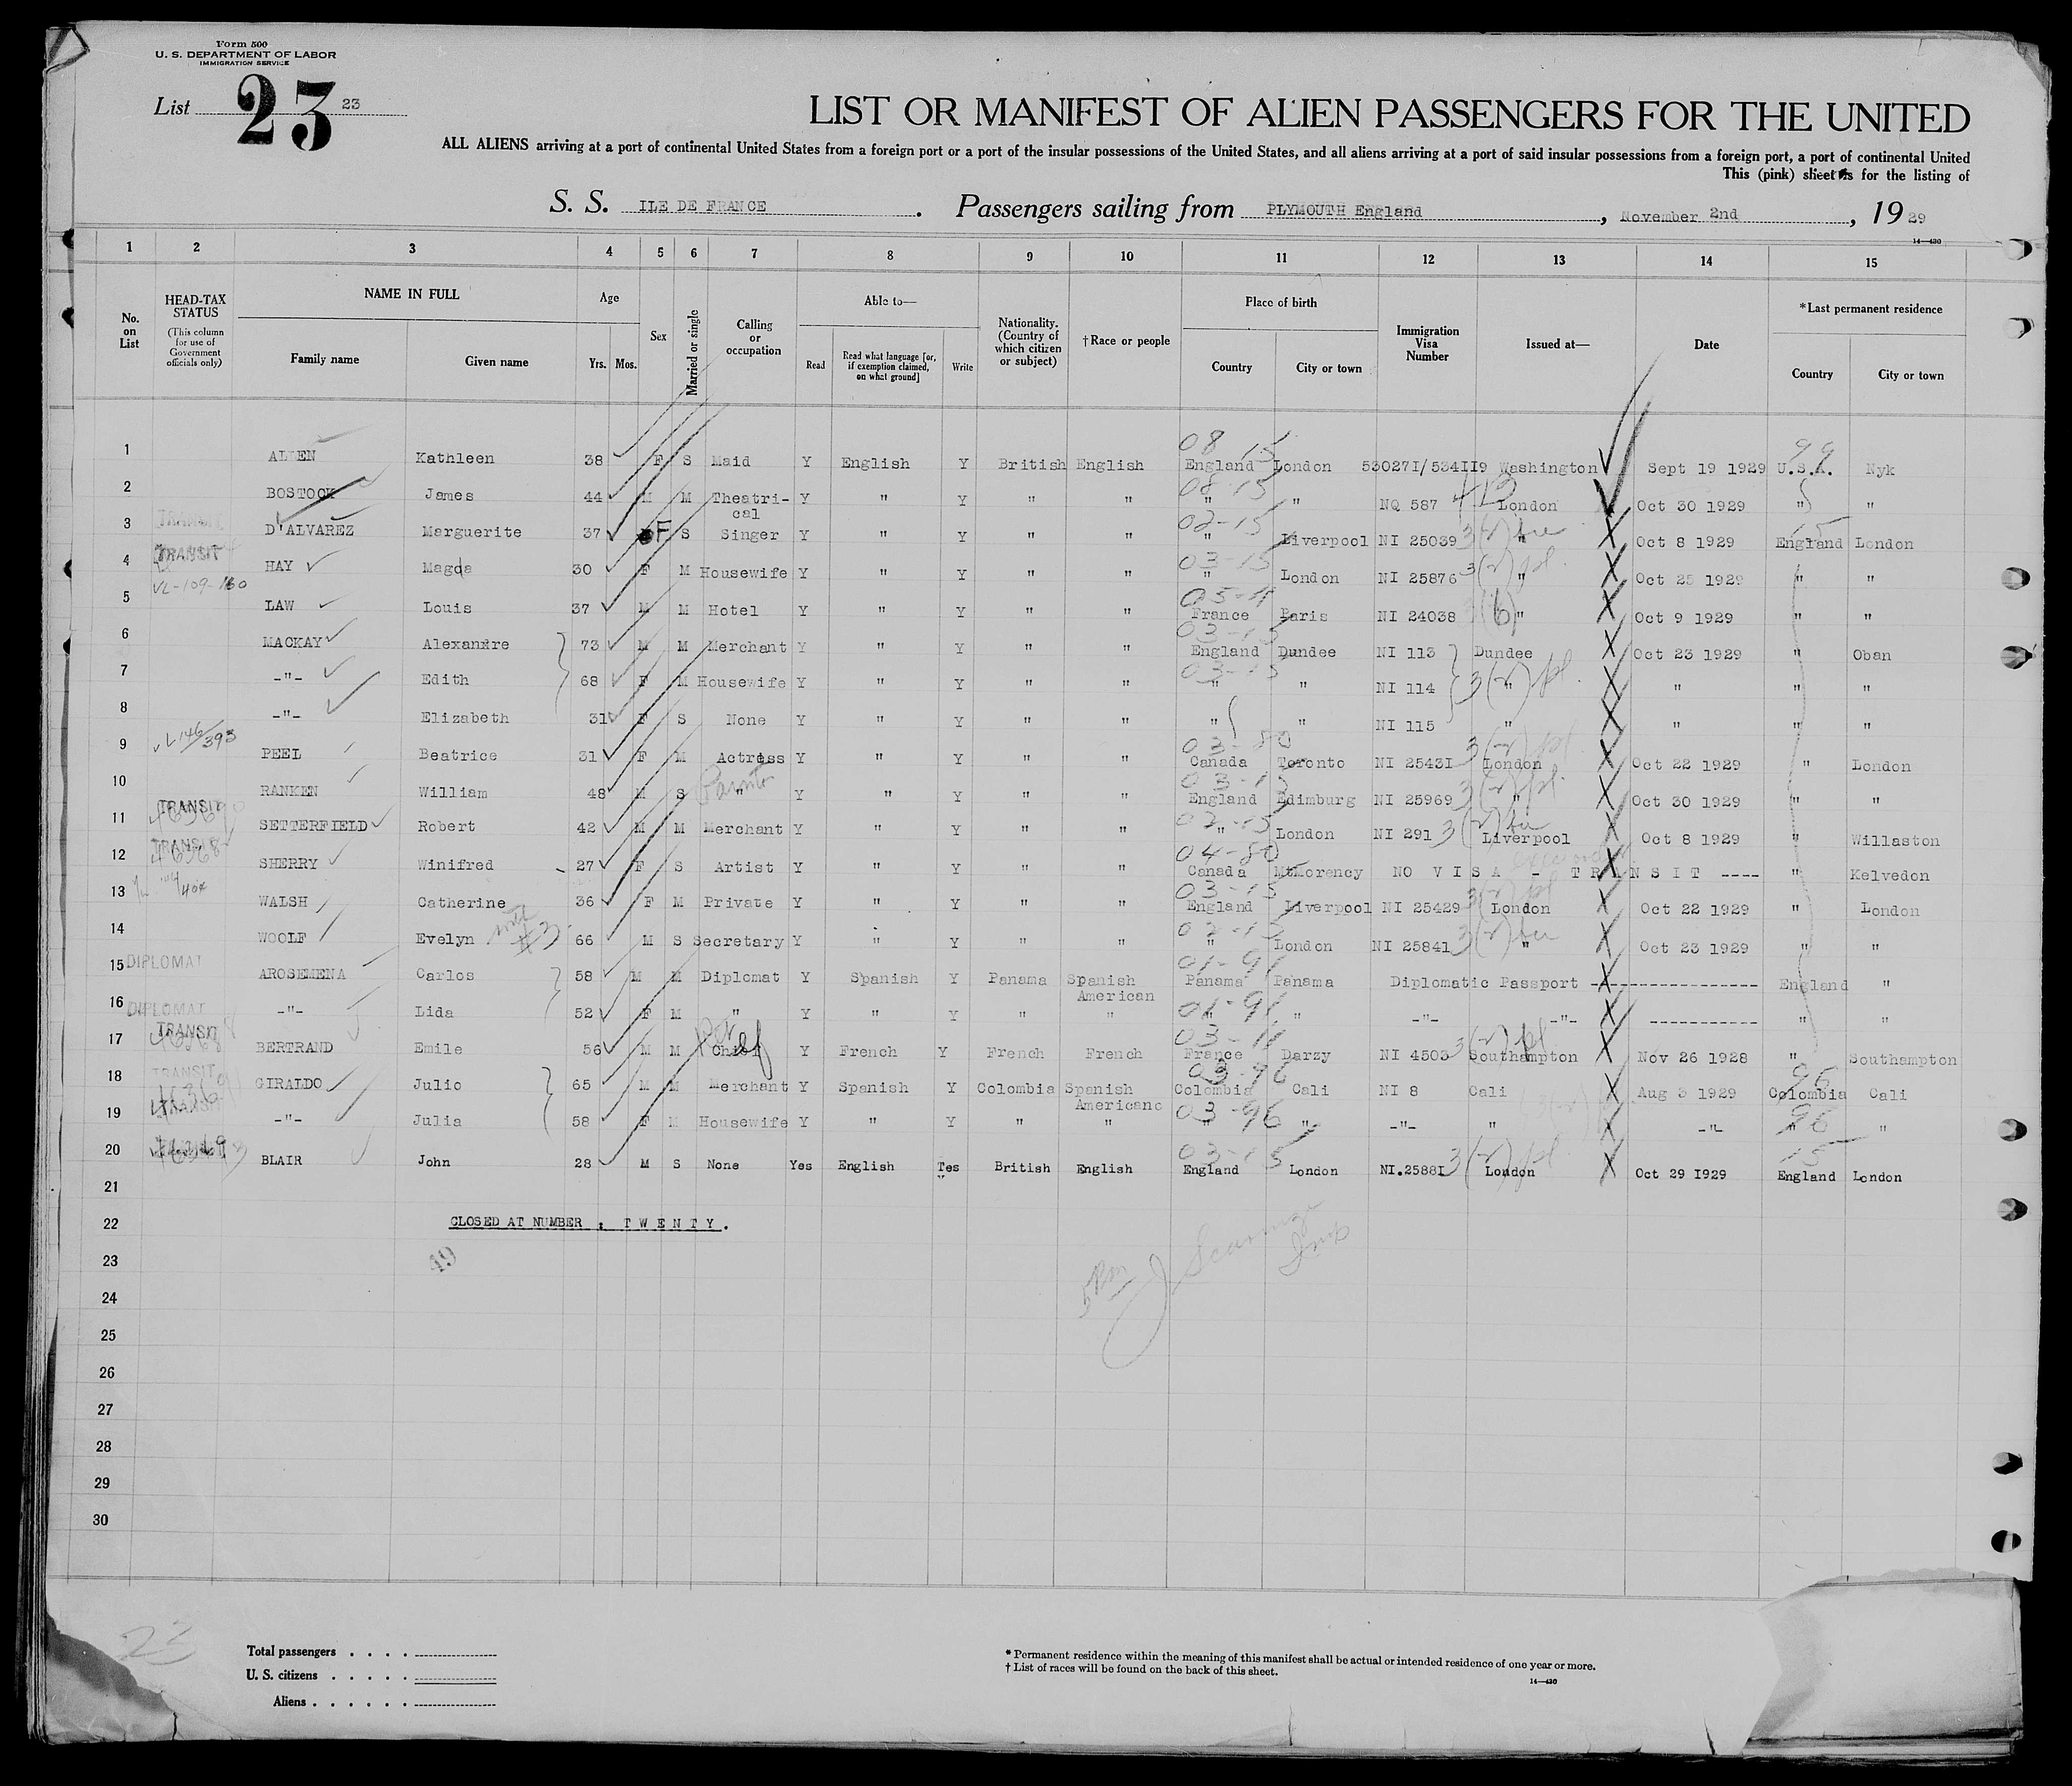 Form 500
U. S. DEPARTMENT OF LABOR
IMMIGRATION SERVICE
List 23 23
LIST OR MANIFEST OF ALIEN PASSENGERS FOR THE UNITED
ALL ALIENS arriving at a port of continental United States from a foreign port or a port of the insular possessions of the United States, and all aliens arriving at a port of said insular possessions from a foreign port, a port of continental United
This (pink) sheet is for the listing of
S. S. ILE DE FRANCE . Passengers sailing from PLYMOUTH England , November 2nd , 19 29
14—430
1 2 3 4 5 6 7 8 9 10 11 12 13 14 15
No. on List
HEAD-TAX STATUS (This column for use of Government officials only)
NAME IN FULL
Family name Given name
Age
Yrs. Mos.
Sex
Married or single
Calling or occupation
Able to—
Read Read what language [or, if exemption claimed, on what ground] Write
Nationality. (Country of which citizen or subject)
†Race or people
Place of birth
Country City or town
Immigration Visa Number
Issued at—
Date
*Last permanent residence
Country City or town
08 15 99
1 ALLEN Kathleen 38 F S Maid Y English Y British English England London 530271/534119 Washington Sept 19 1929 U.S.A. Nyk
08-15
2 BOSTOCK James 44 M M Theatri-cal Y " Y " " " " NQ 587 London Oct 30 1929 " "
02-15 15
3 TRANSIT D'ALVAREZ Marguerite 37 F S Singer Y " Y " " " Liverpool NI 25039 3(2) " Oct 8 1929 England London
03-15
4 TRANSIT HAY Magda 30 F M Housewife Y " Y " " " London NI 25876 3(2) pl. " Oct 25 1929 " "
VL-109-160
05-11
5 LAW Louis 37 M M Hotel Y " Y " " France Paris NI 24038 3(6) " Oct 9 1929 " "
03-15
6 MACKAY Alexandre 73 M M Merchant Y " Y " " England Dundee NI 113 Dundee Oct 23 1929 " Oban
03-15
7 -"- Edith 68 F M Housewife Y " Y " " " " NI 114 3(2) pl. " " " "
8 -"- Elizabeth 31 F S None Y " Y " " " " NI 115 " " " "
03-80
9 VL 146/393 PEEL Beatrice 31 F M Actress Y " Y " " Canada Toronto NI 25431 3(2) pl London Oct 22 1929 " London
03-15
10 RANKEN William 48 M S " Painter Y " Y " " England Edimburg NI 25969 3(2) pl " Oct 30 1929 " "
02-15
11 TRANSIT SETTERFIELD Robert 42 M M Merchant Y " Y " " " London NI 291 3(2) Liverpool Oct 8 1929 " Willaston
04-80
12 TRANSIT SHERRY Winifred 27 F S Artist Y " Y " " Canada MtMorency NO VISA - TRANSIT ---- " Kelvedon
03-15
13 WALSH Catherine 36 F M Private Y " Y " " England Liverpool NI 25429 3(2) pl London Oct 22 1929 " London
02-15
14 WOOLF Evelyn with #3 66 M S Secretary Y " Y " " " London NI 25841 3(2) " Oct 23 1929 " "
01-91
15 DIPLOMAT AROSEMENA Carlos 58 M M Diplomat Y Spanish Y Panama Spanish American Panama Panama Diplomatic Passport ---------------- England "
01-91
16 DIPLOMAT -"- Lida 52 F M " Y " Y " " " " -"- -"- ----------- " "
03-11
17 TRANSIT BERTRAND Emile 56 M M Chief Y French Y French French France Darzy NI 4503 3(2) pl Southampton Nov 26 1928 " Southampton
03-96 96
18 TRANSIT GIRALDO Julio 65 M M Merchant Y Spanish Y Colombia Spanish Americano Colombia Cali NI 8 Cali Aug 3 1929 Colombia Cali
03-96 96
19 TRANSIT -"- Julia 58 F M Housewife Y " Y " " " " -"- " -"- " "
03-15 15
20 BLAIR John 28 M S None Yes English Yes British English England London NI.25881 3(2) pl London Oct 29 1929 England London
21
22 CLOSED AT NUMBER : T W E N T Y .
49
23
5 Pm
24
25
26
27
28
29
30
23
Total passengers
U. S. citizens
Aliens
* Permanent residence within the meaning of this manifest shall be actual or intended residence of one year or more.
† List of races will be found on the back of this sheet.
14—430